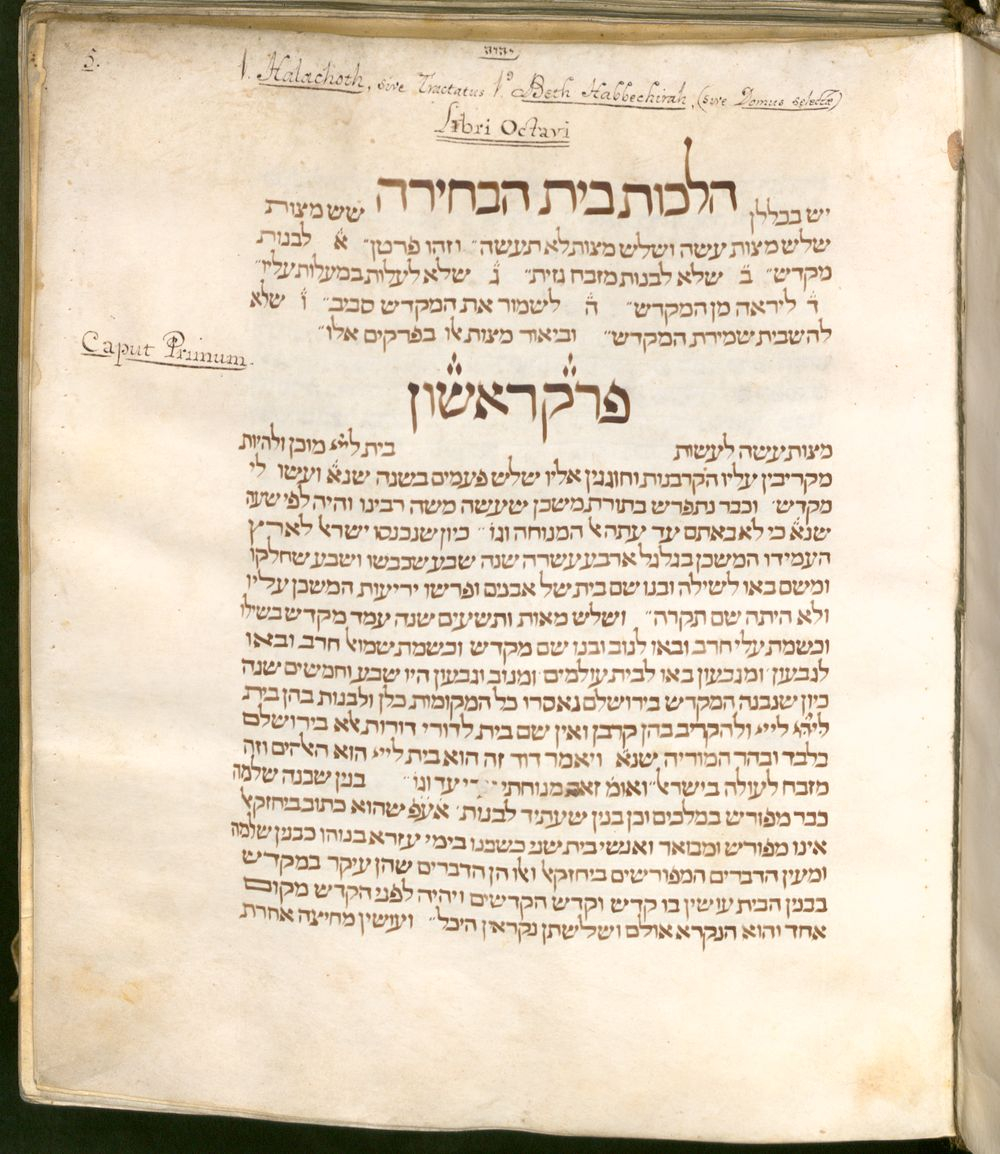 5.
יהוה
V. Halachoth, sive Tractatus V.s Beth Habbechirah, (sive Domus selectæ)
Libri Octavi
הלכות בית הבחירה
יש בכללן שש מצות
שלש מצות עשה ושלש מצות לא תעשה״ וזהו פרטן״ א׳ לבנות
מקדש״ ב׳ שלא לבנות מזבח גזית״ ג׳ שלא לעלות במעלות עליו״
ד׳ ליראה מן המקדש״ ה׳ לשמור את המקדש סביב״ ו׳ שלא
להשבית שמירת המקדש״ וביאור מצות אלו בפרקים אלו״
Caput Primum.
פרק ראשון
מצות עשה לעשות בית לייי מוכן ולהיות
מקריבין עליו הקרבנות וחוגגין אליו שלש פעמים בשנה שנא׳ ועשו לי
מקדש׳ וכבר נתפרש בתורת משכן שעשה משה רבינו והיה לפי שעה
שנא׳ כי לא באתם עד עתה אל המנוחה וגו׳״ כיון שנכנסו ישראל לארץ
העמידו המשכן בגלגל ארבע עשרה שנה שבע שכבשו ושבע שחלקו
ומשם באו לשילה ובנו שם בית של אבנים ופרשו יריעות המשכן עליו
ולא היתה שם תקרה״ ושלש מאות ותשעים שנה עמד מקדש בשילו
וכשמת עלי חרב ובאו לנוב ובנו שם מקדש וכשמת שמואל חרב ובאו
לגבעון׳ ומגבעון באו לבית עולמים׳ ומנוב וגבעון היו שבע וחמשים שנה
כיון שנבנה המקדש בירושלם נאסרו כל המקומות כלן ולבנות בהן בית
לייי ולהקריב בהן קרבן ואין שם בית לדורי דורות אלא בירושלם
בלבד ובהר המוריה שנא׳ ויאמר דוד זה הוא בית לייי הוא האלהים וזה
מזבח לעולה בישראל״ ואומ׳ זאת מנוחתי עדי עד וגו׳״ בנין שבנה שלמה
כבר מפורש במלכים וכן בנין שעתיד לבנות׳ אעפ שהוא כתוב ביחזקאל
אינו מפורש ומבואר ואנשי בית שני כשבנו בימי עזרא בנוהו כבנין שלמה
ומעין הדברים המפורשים ביחזקאל ואלו הן הדברים שהן עיקר במקדש
בבנין הבית עושין בו קדש וקדש הקדשים ויהיה לפני הקדש מקום
אחד והוא הנקרא אולם ושלשתן נקראין היכל״ ועושין מחיצה אחרת